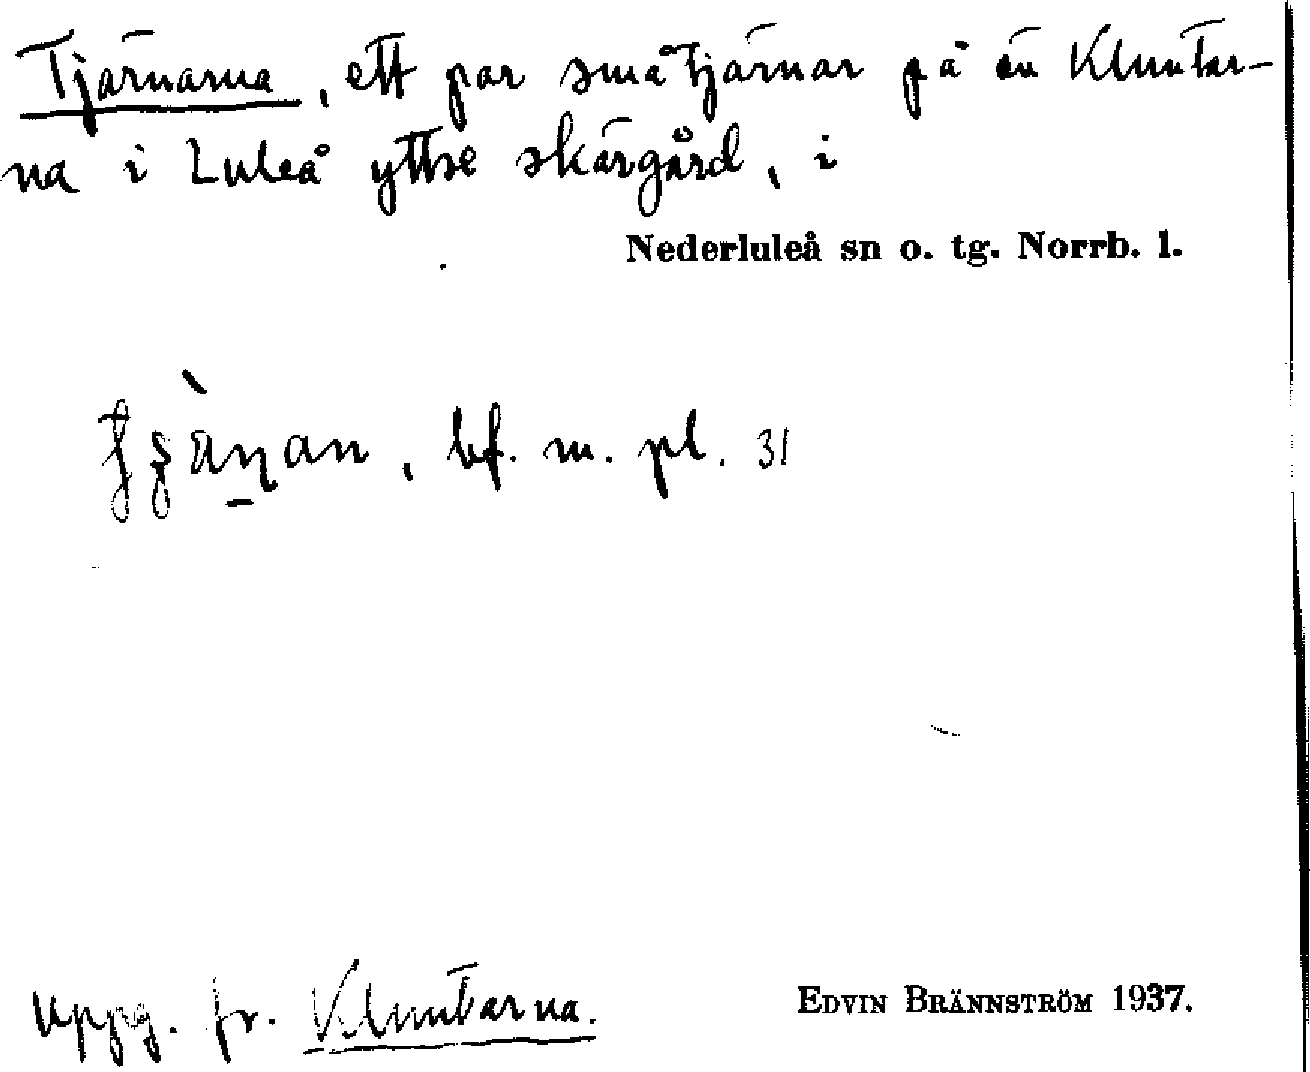 Tjärnarna, ett par små tjärnar på ön Kluntar-
na i Luleå yttre skärgård, i
Nederluleå sn o. tg. Norrb. l.
bf. m. pl. 31
Uppg. fr. Kluntarna.
EDVIN BRÄNNSTRÖM 1937.